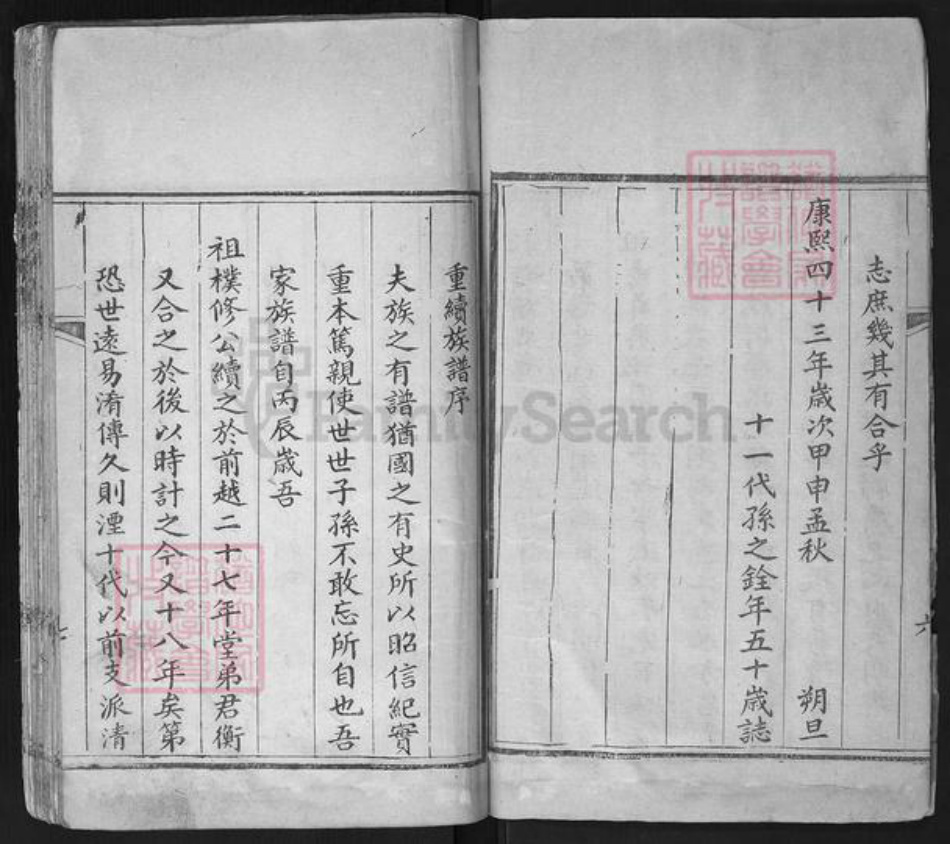 志庶幾其有合乎
康熙四十三年歲次甲申孟秋 朔旦
十一代孫之銓年五十歲誌
六
重續族譜序
夫族之有譜猶國之有史所以昭信紀實
重本篤親使世世子孫不敢忘所自也吾
家族譜自丙辰歲吾
祖樸修公續之於前越二十七年堂弟君衡
又合之於後以時計之今又十八年矣第
恐世遠易淆傳久則湮十代以前支派清
七
FamilySearch